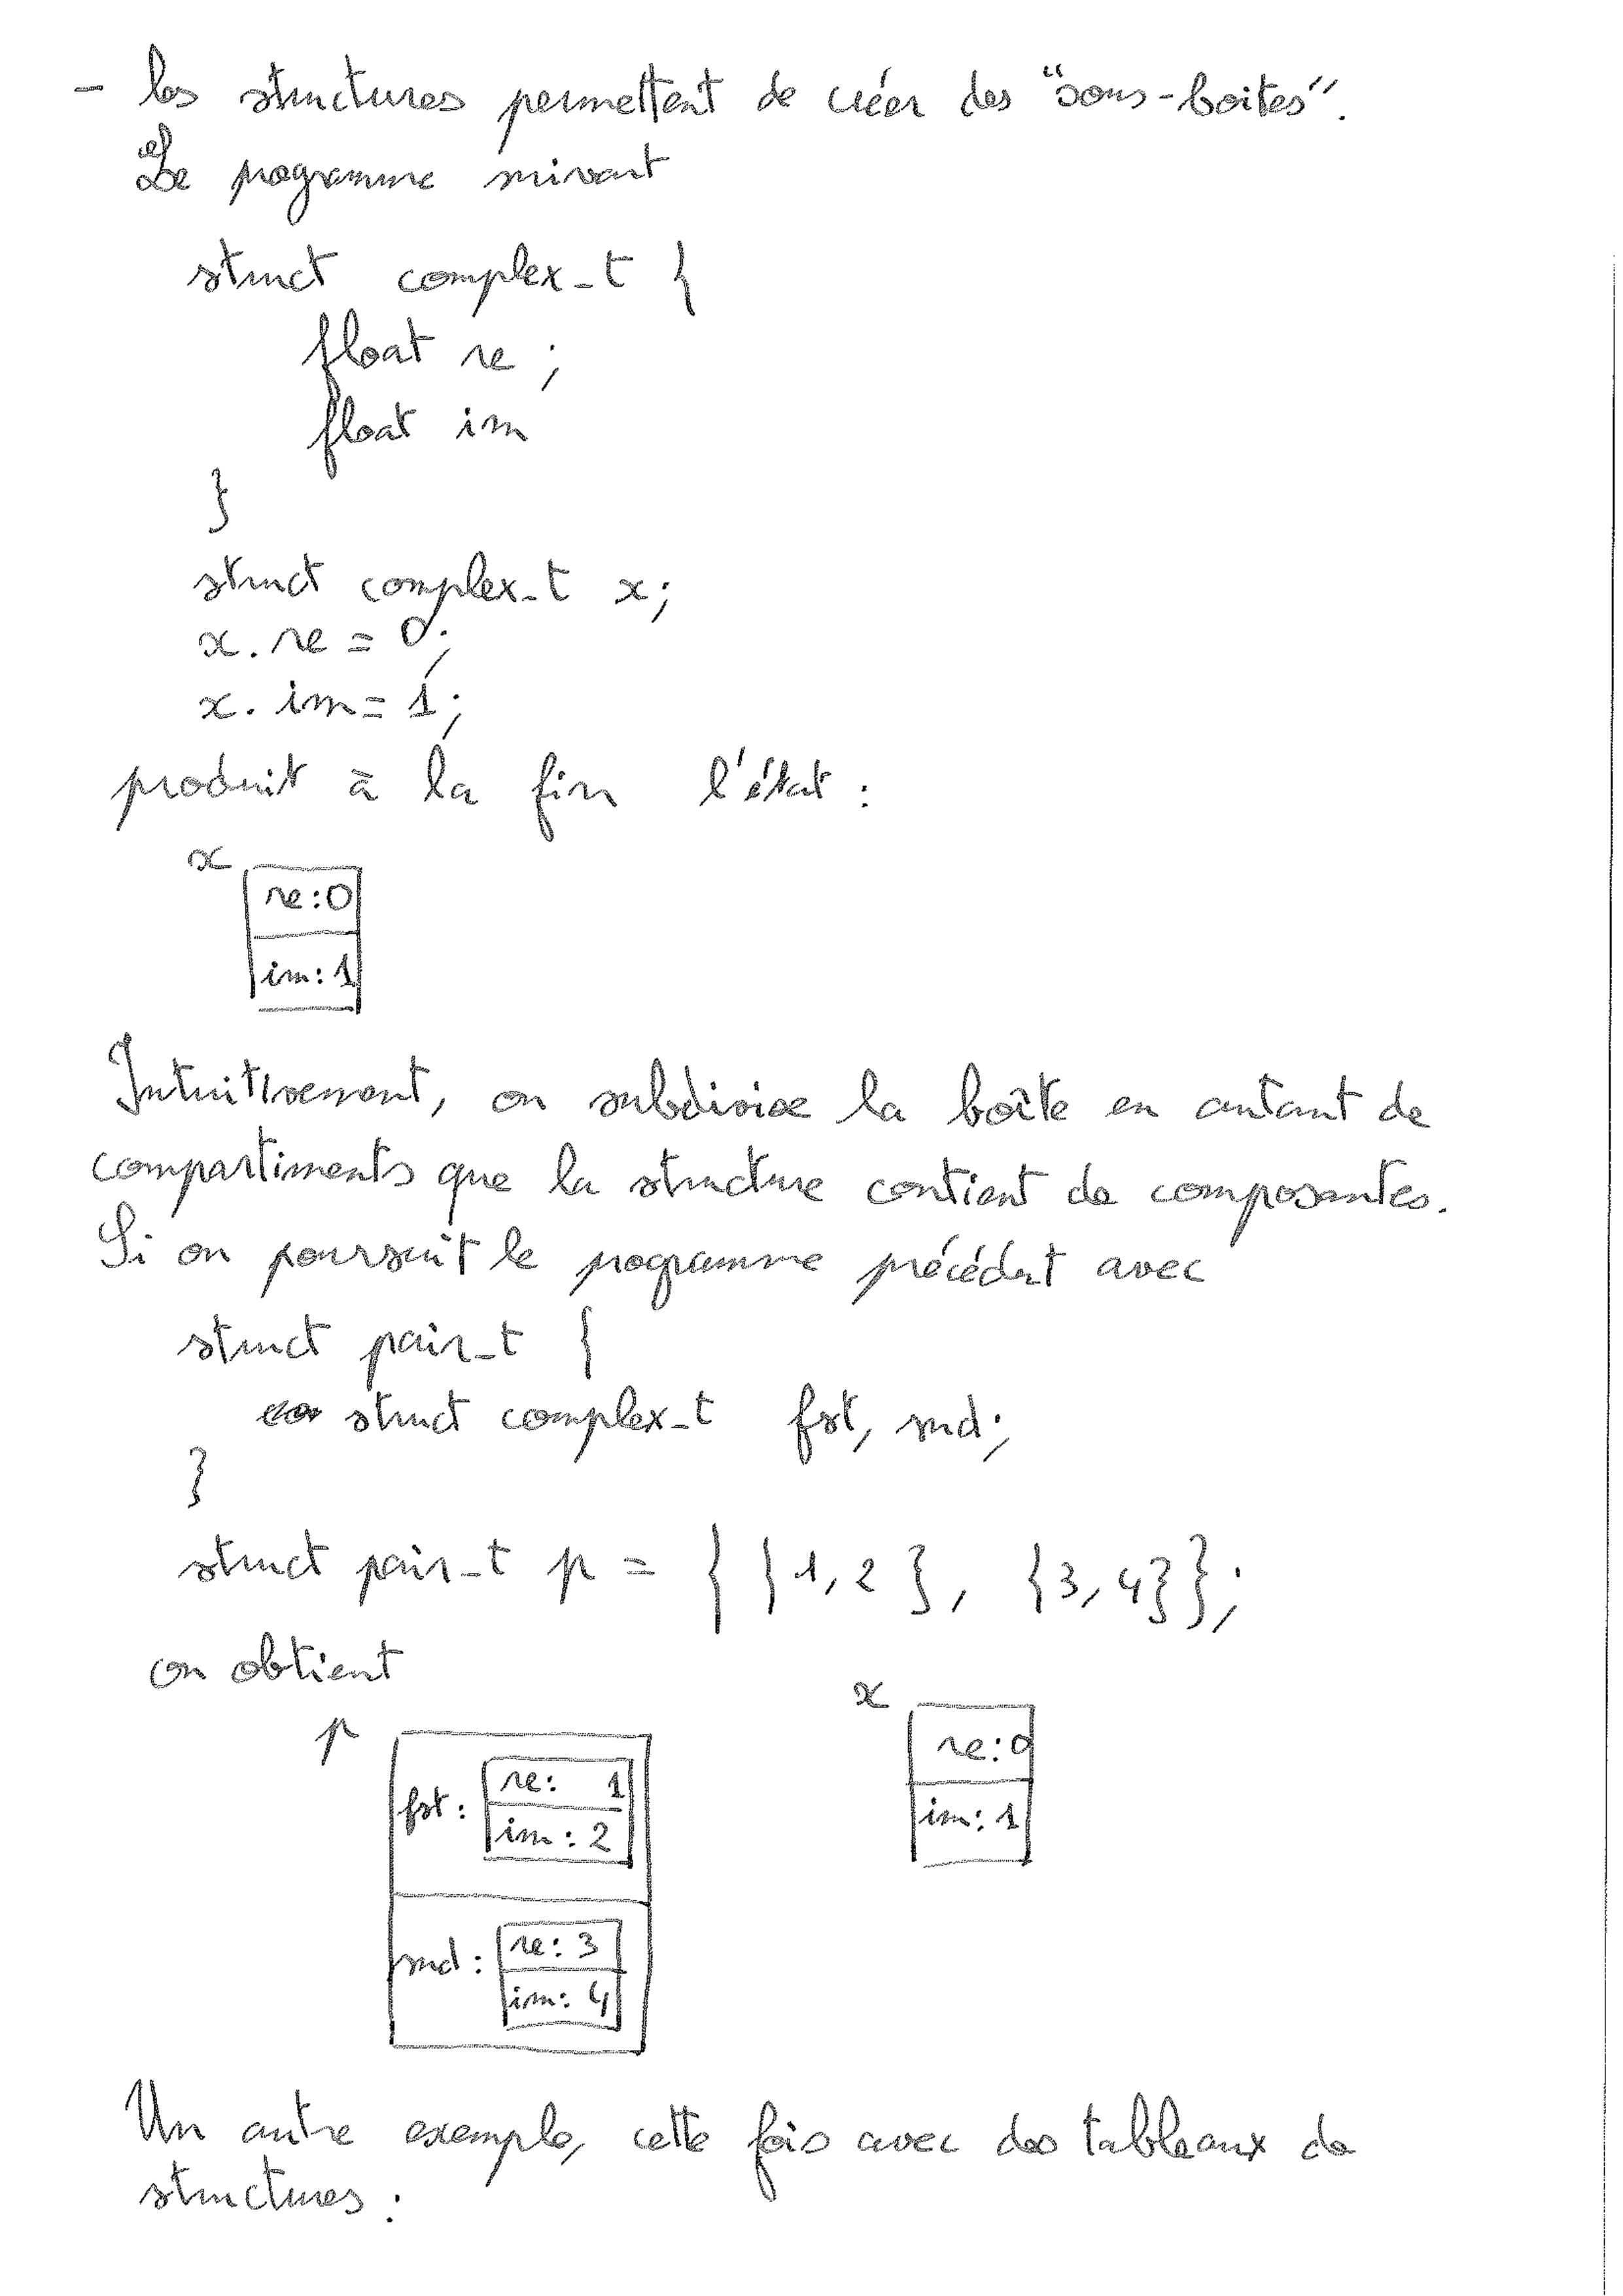 - les structures permettent de créer des "sous-boites".
Le programme suivant
struct complex_t {
float re ;
float im
}
struct complex_t x;
x.re = 0;
x.im = 1;
produit à la fin l'état :
x
re:0
im:1
Intuitivement, on subdivise la boîte en autant de
compartiments que la structure contient de composantes.
Si on poursuit le programme précédent avec
struct pair_t {
struct complex_t fst, snd;
}
struct pair_t p = { {1,2}, {3,4}};
on obtient
p
fst: re: 1
im: 2
snd: re: 3
im: 4
x
re:0
im: 1
Un autre exemple, cette fois avec des tableaux de
structures :